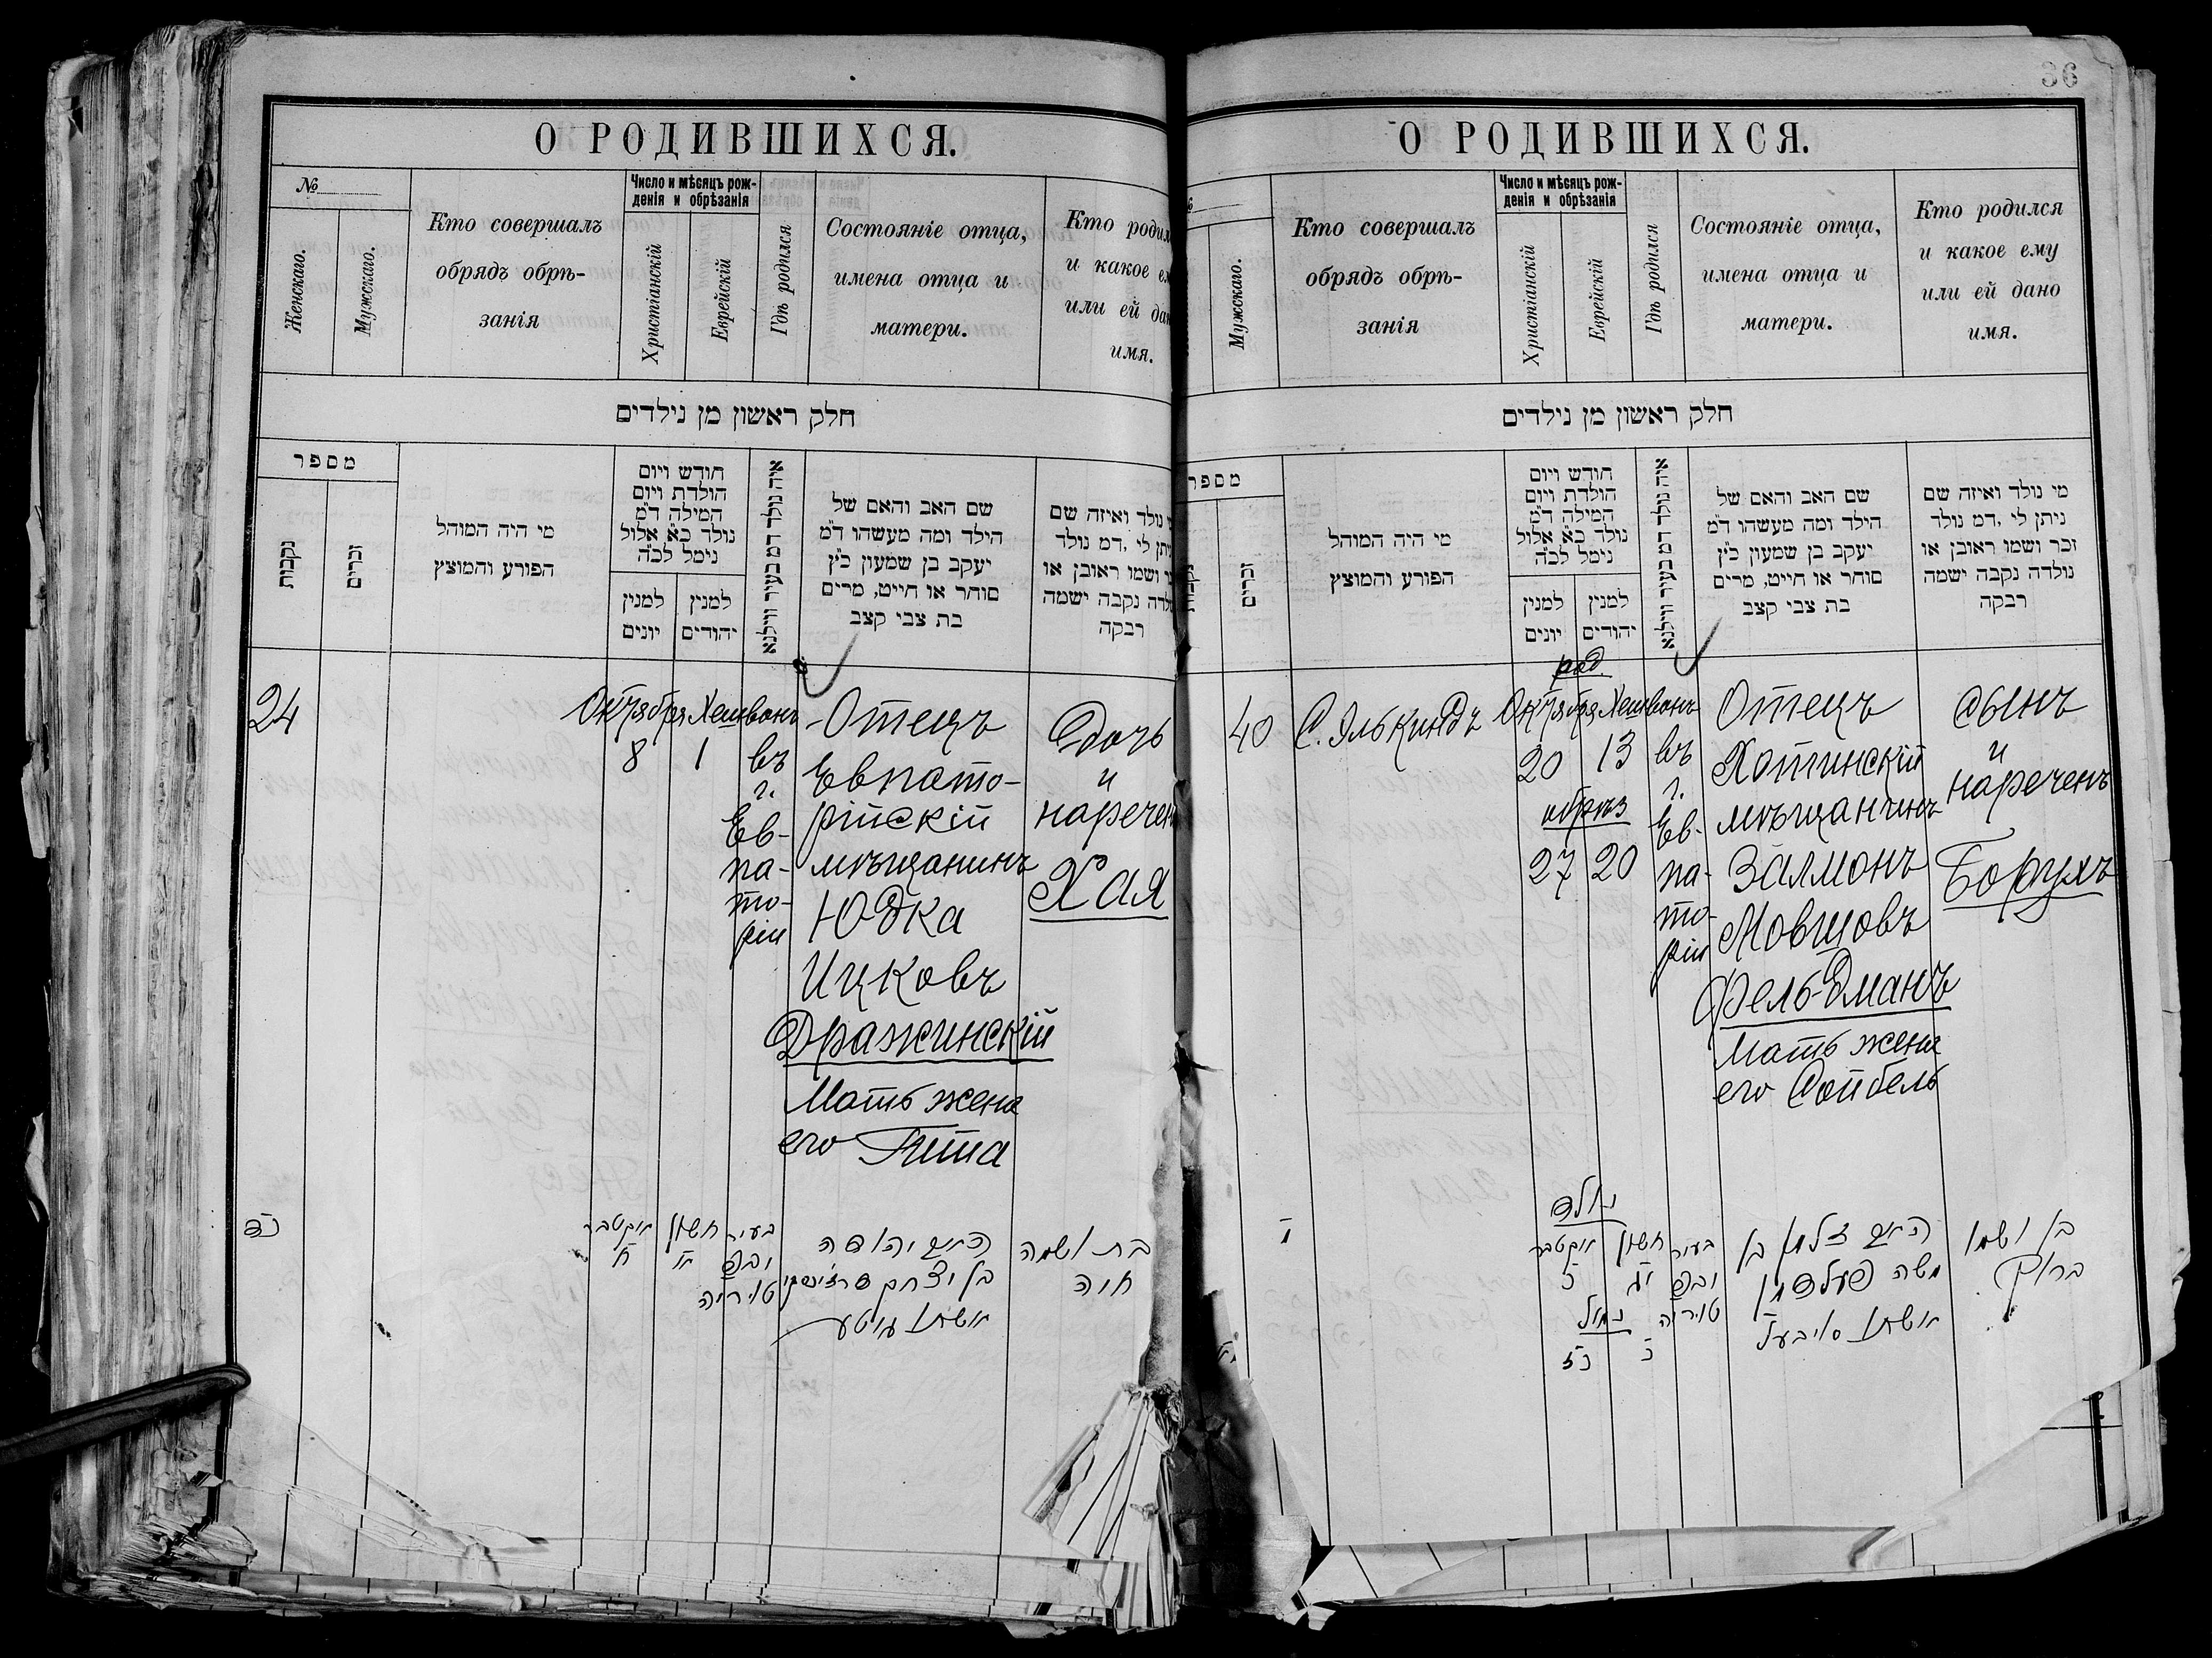 О РОДИВШИХСЯ.
№
Женскаго.
Мужскаго.
Кто совершалъ
обрядъ обрѣ-
занія
Число и мѣсяцъ рож-
денія и обрѣзанія
Христіанскій
Еврейскій
Гдѣ родился
Состояніе отца,
имена отца и
матери.
Кто родил
и какое ем
или ей дан
имя.
חלק ראשון מן נילדים
מספר
נקבות
זכרים
מי היה המוהל
הפורע והמוצץ
חודש ויום
הולדת ויום
המילה ד״מ
נולד כ״א אלול
נימל לכ״ה
למנין
יונים
למנין
יהודים
איה נולד דמ בעיר ווילנא
שם האב והאם של
הילד ומה מעשהו ד״מ
יעקב בן שמעון כ״ץ
סוחר או חייט, מרים
בת צבי קצב
נולד ואיזה שם
יתן לי ,דמ נולד
ושמו ראובן או
לדה נקבה ישמה
רבקה
24
Октября Хешвонъ
8 1
въ
г.
Ев-
па-
то-
ріи
Отецъ
Евпато-
рійскій
мѣщанинъ
Юдка
Ицковъ
Дражинскій
Мать жена
его
Дочь
и
наречен
Хая
כ״ד
אוקטבר
ח
חשון
א
בעיר
יבפ
טוריה
האב יהודה
בן יצחק דרזינסקי
אשתו גיטע
בת ושמה
חיה
36
О РОДИВШИХСЯ.
Мужскаго.
Кто совершалъ
обрядъ обрѣ-
занія
Число и мѣсяцъ рож-
денія и обрѣзанія
Христіанскій
Еврейскій
Гдѣ родился
Состояніе отца,
имена отца и
матери.
Кто родился
и какое ему
или ей дано
имя.
חלק ראשון מן נילדים
מספר
נקבות
זכרים
מי היה המוהל
הפורע והמוצץ
חודש ויום
הולדת ויום
המילה ד״מ
נולד כ״א אלול
נימל לכ״ה
למנין
יונים
למנין
יהודים
איה נולד דמ בעיר ווילנא
שם האב והאם של
הילד ומה מעשהו ד״מ
יעקב בן שמעון כ״ץ
סוחר או חייט, מרים
בת צבי קצב
מי נולד ואיזה שם
ניתן לי ,דמ נולד
זכר ושמו ראובן או
נולדה נקבה ישמה
רבקה
40
С. Элькиндъ
род.
Октября Хешвонъ
20 13
обрѣз
27 20
въ
г.
Ев-
па-
то-
ріи
Отецъ
Хотинскій
мѣщанинъ
Залмонъ
Мовшовъ
Фельдманъ
Мать жена
его Сойбель
сынъ
и
нареченъ
Борухъ
נולד
אוקטבר
כ
חשון
יג
נמול
כ״ז
כ
בעיר
יבפ
טוריה
האב זלמן בן
משה פעלדמן
אשתו סויבעל
בן ושמו
ברוך